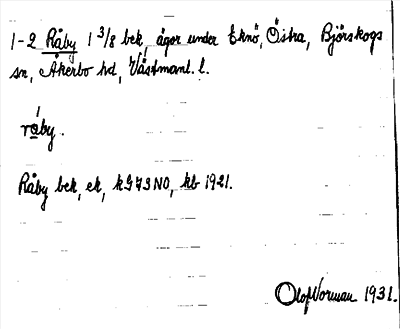 1-2 Råby 1 3/8 bek, ägor under Eknö, Östra, Björskogs
sn, Åkerbo hd, Västmanl. l.
råby.
Råby bek, ek, k
NO, kb 1921.
Olof Norman 1931.